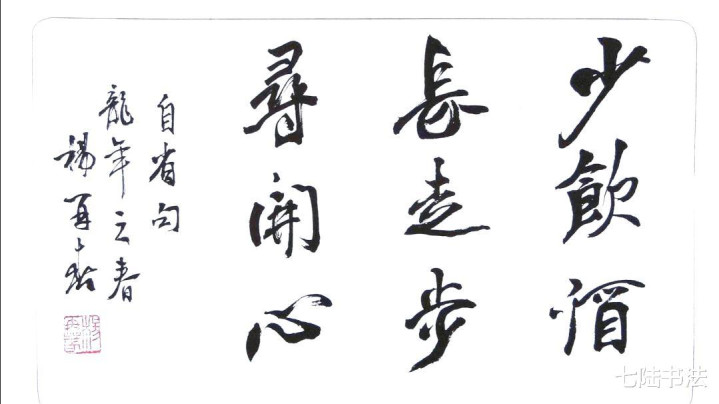 少飲酒
長走步
尋開心
自省句
龍年之春
楊再春
七陆书法